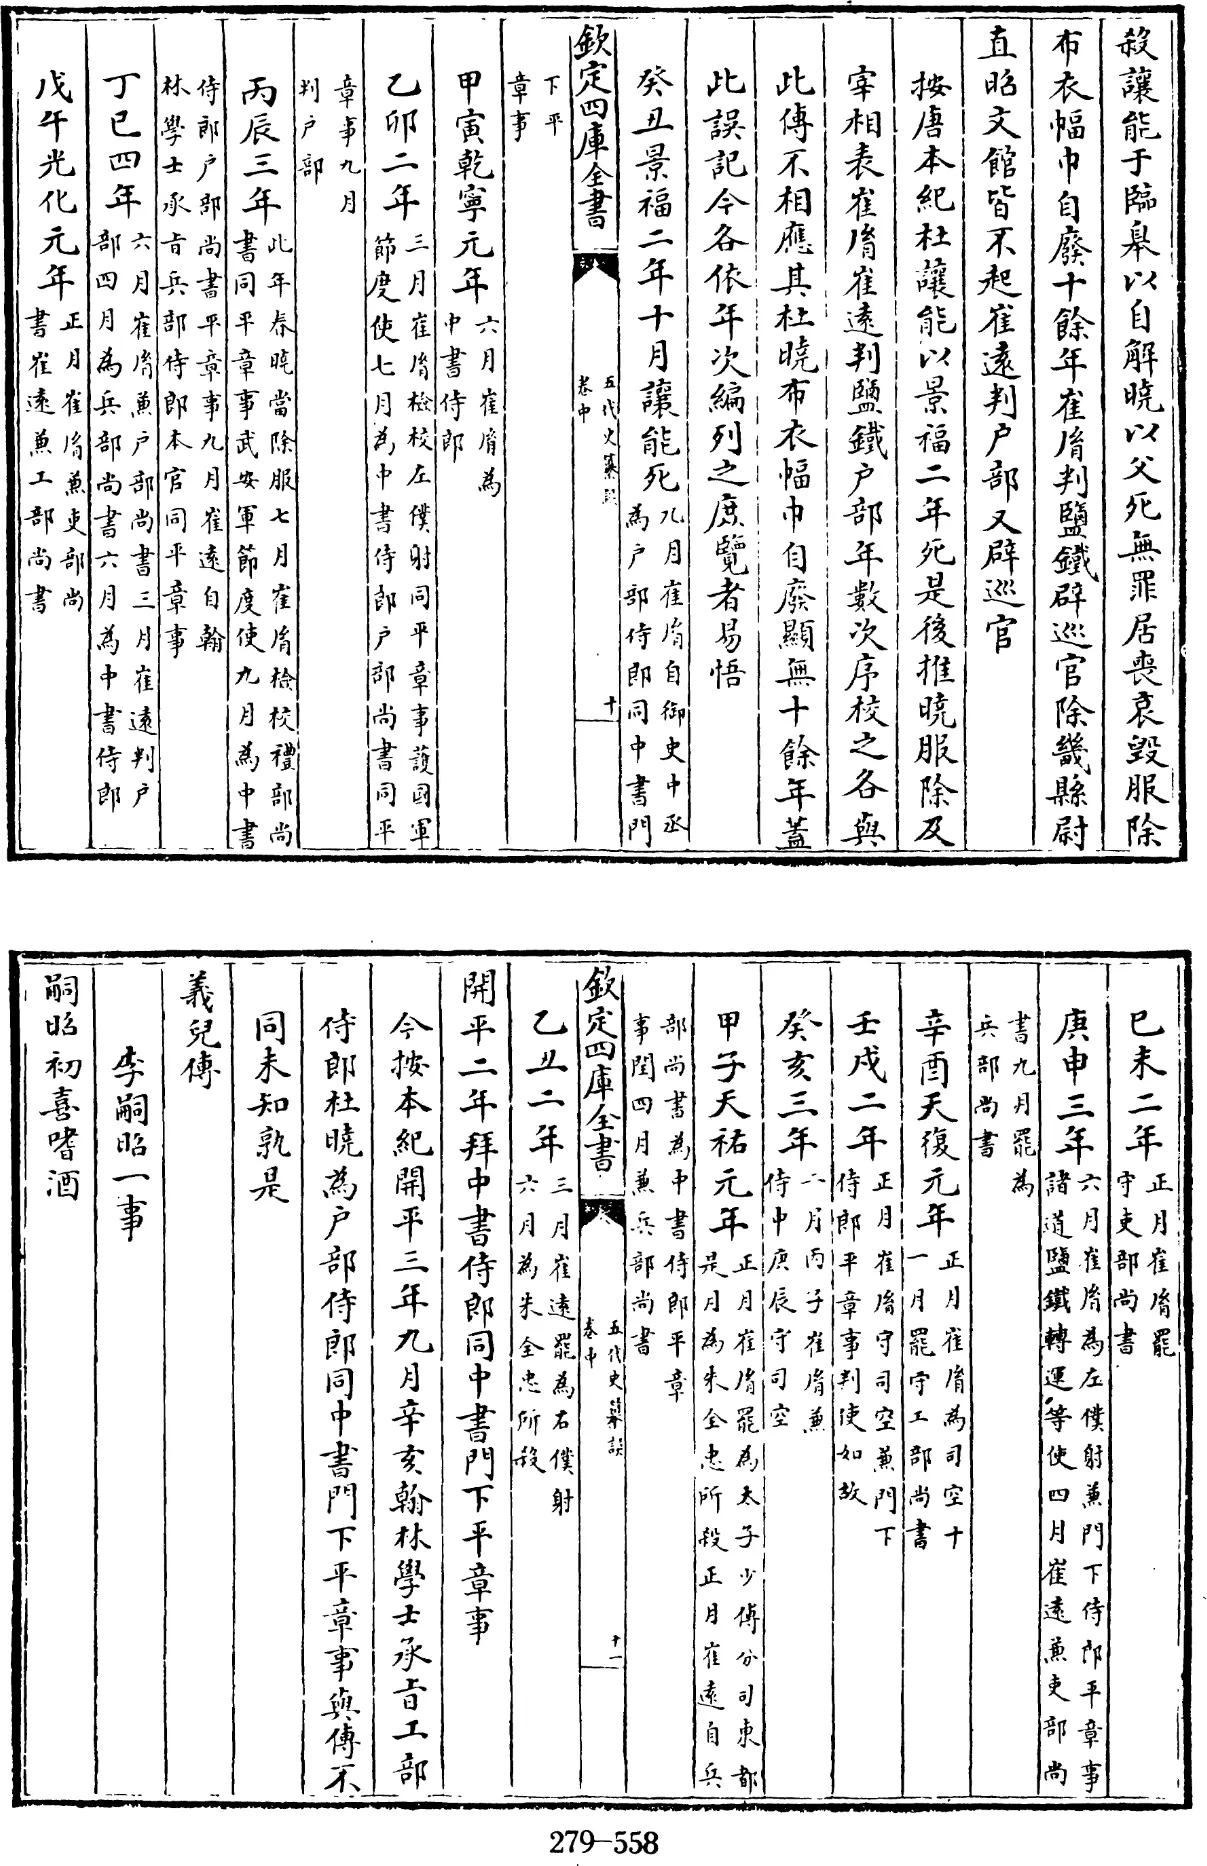 殺讓能于臨臯以自解曉以父死無罪居喪哀毀服除
布衣幅巾自廢十餘年崔𦙍判鹽鐵辟巡官除畿縣尉
直昭文館皆不起崔遠判户部又辟巡官
按唐本紀杜讓能以景福二年死是後推曉服除及
宰相表崔𦙍崔遠判鹽鐵户部年數次序校之各與
此傳不相應其杜曉布衣幅巾自廢顯無十餘年蓋
此誤記今各依年次編列之庶覽者易悟
癸丑景福二年十月讓能死九月崔𦙍自御史中丞
為户部侍郎同中書門
欽定四庫全書
五代史纂誤
卷中
十
下平
章事
甲寅乾寧元年六月崔𦙍為
中書侍郎
乙卯二年三月崔𦙍檢校左僕射同平章事護國軍
節度使七月為中書侍郎户部尚書同平
章事九月
判户部
丙辰三年此年春曉當除服七月崔𦙍檢校禮部尚
書同平章事武安軍節度使九月為中書
侍郎户部尚書平章事九月崔遠自翰
林學士承㫖兵部侍郎本官同平章事
丁巳四年六月崔𦙍兼户部尚書三月崔遠判户
部四月為兵部尚書六月為中書侍郎
戊午光化元年正月崔𦙍兼吏部尚
書崔遠兼工部尚書
已未二年正月崔𦙍罷
守吏部尚書
庚申三年六月崔𦙍為左僕射兼門下侍郎平章事
諸道鹽鐵轉運等使四月崔遠兼吏部尚
書九月罷為
兵部尚書
辛酉天復元年正月崔𦙍為司空十
一月罷守工部尚書
壬戌二年正月崔𦙍守司空兼門下
侍郎平章事判使如故
癸亥三年一月丙子崔𦙍兼
侍中庚辰守司空
甲子天祐元年正月崔𦙍罷為太子少傅分司東都
是月為朱全忠所殺正月崔遠自兵
部尚書為中書侍郎平章
事閏四月兼兵部尚書
欽定四庫全書
五代史纂誤
卷中
十一
乙丑二年三月崔遠罷為右僕射
六月為朱全忠所殺
開平二年拜中書侍郎同中書門下平章事
今按本紀開平三年九月辛亥翰林學士承㫖工部
侍郎杜曉為户部侍郎同中書門下平章事與傳不
同未知孰是
義兒傳
李嗣昭一事
嗣昭初喜嗜酒
279-558